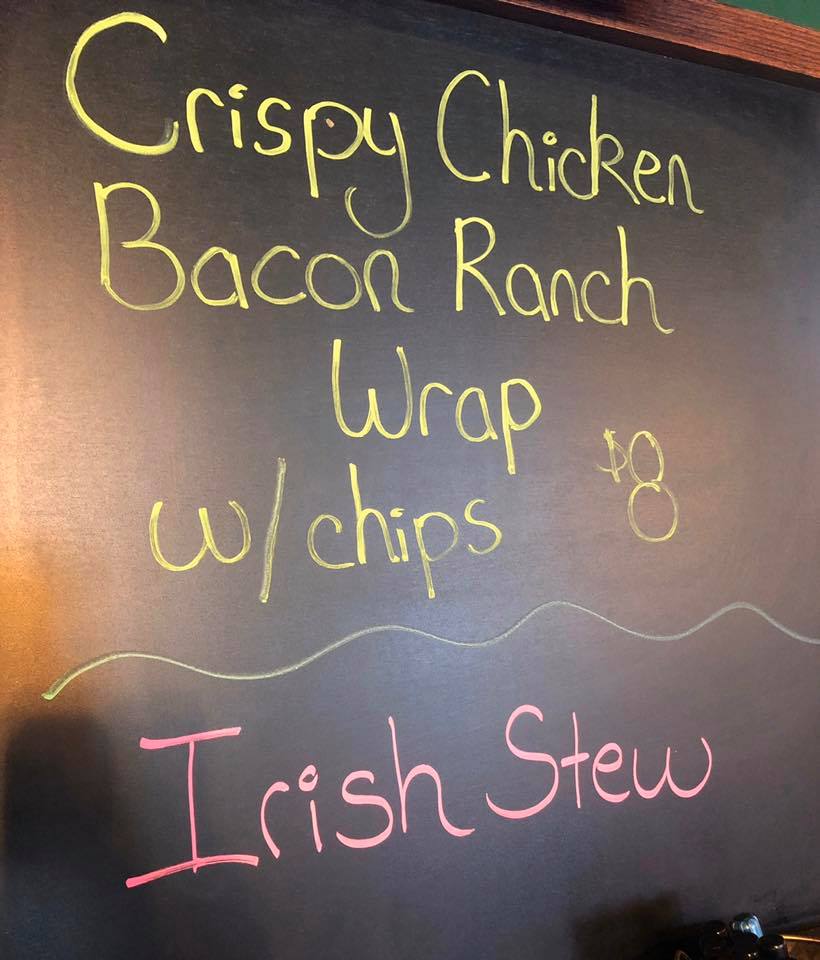 Crispy Chicken
Bacon Ranch
Wrap
w/chips $8
Irish Stew